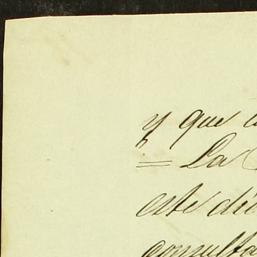 y que
= La
este
consulta